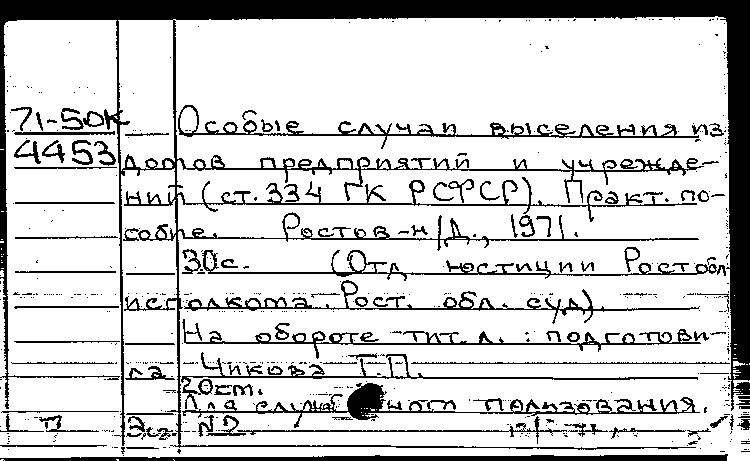 71-50К
4453
Особые случаи выселения из
домов предприятий и учрежде-
ний (ст. 334 ГК РСФСР). Практ. по-
собие. Ростов-н/Д., 1971.
30с. (Отд юстиции Ростобл-
исполкома. Рост. обл. суд).
На обороте тит. л.: подготови-
ла Чикова Т.П.
20см.
Для служебного пользования.
П Экз. №2.